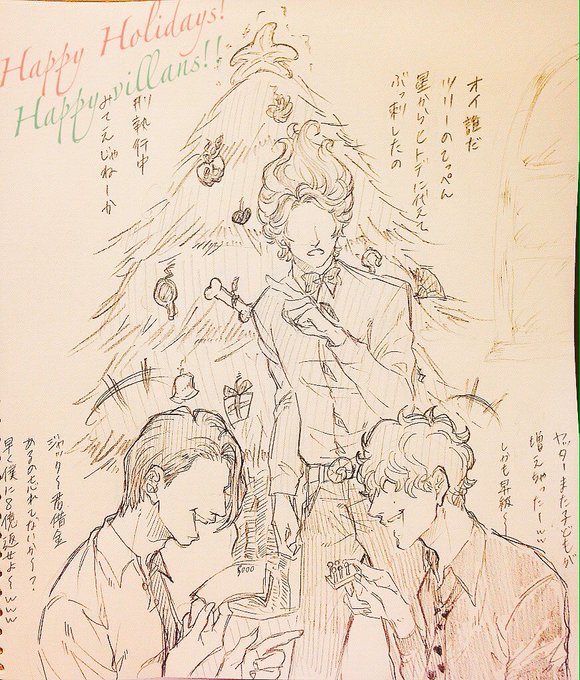 Happy Holidays!
Happy villans!!
オイ誰だ
ツリーのてっぺん
星からヒトデに代えて
ぶっ刺したの
刑執行中
みてえじゃねーか
ヤッターまた子どもが
増えちゃったーwww
しかも昇級〜
ジャック〜君借金
あるの忘れてないか〜?
早く僕に8億返せよ〜www